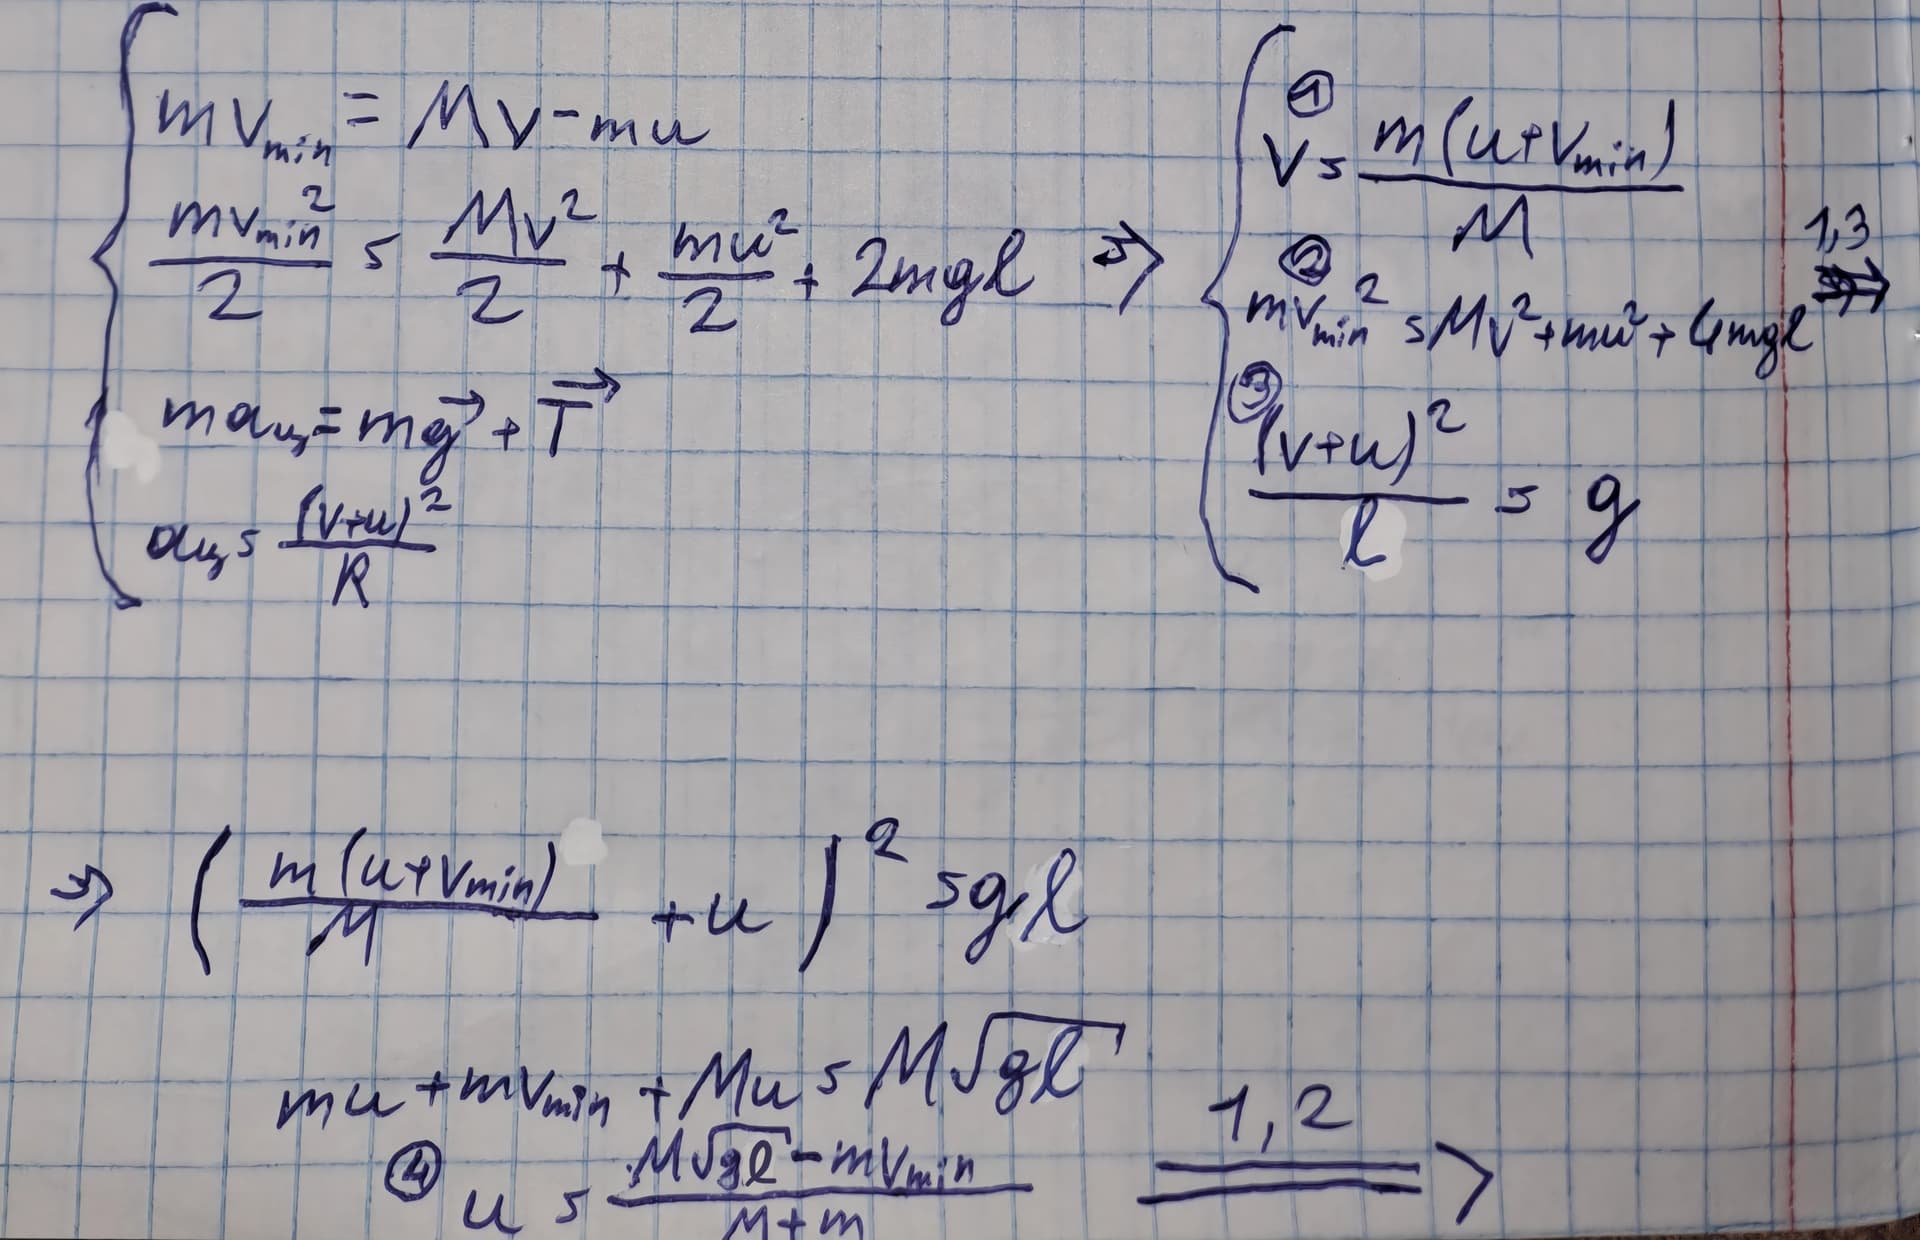 mv_min = Mv - mu
mv_min²/2 = Mv²/2 + mu²/2 + 2mgl ⇒
ma_ц = mg⃗ + T⃗
a_ц = (v+u)²/R
① v = m(u+v_min)/M
② mv_min² = Mv² + mu² + 4mgl 1,3 ⇒
③ (v+u)²/l = g
⇒ (m(u+v_min)/M + u)² = gl
mu + mv_min + Mu = M√gl
④ u = (M√gl - mv_min)/(M+m) 1,2 ⇒